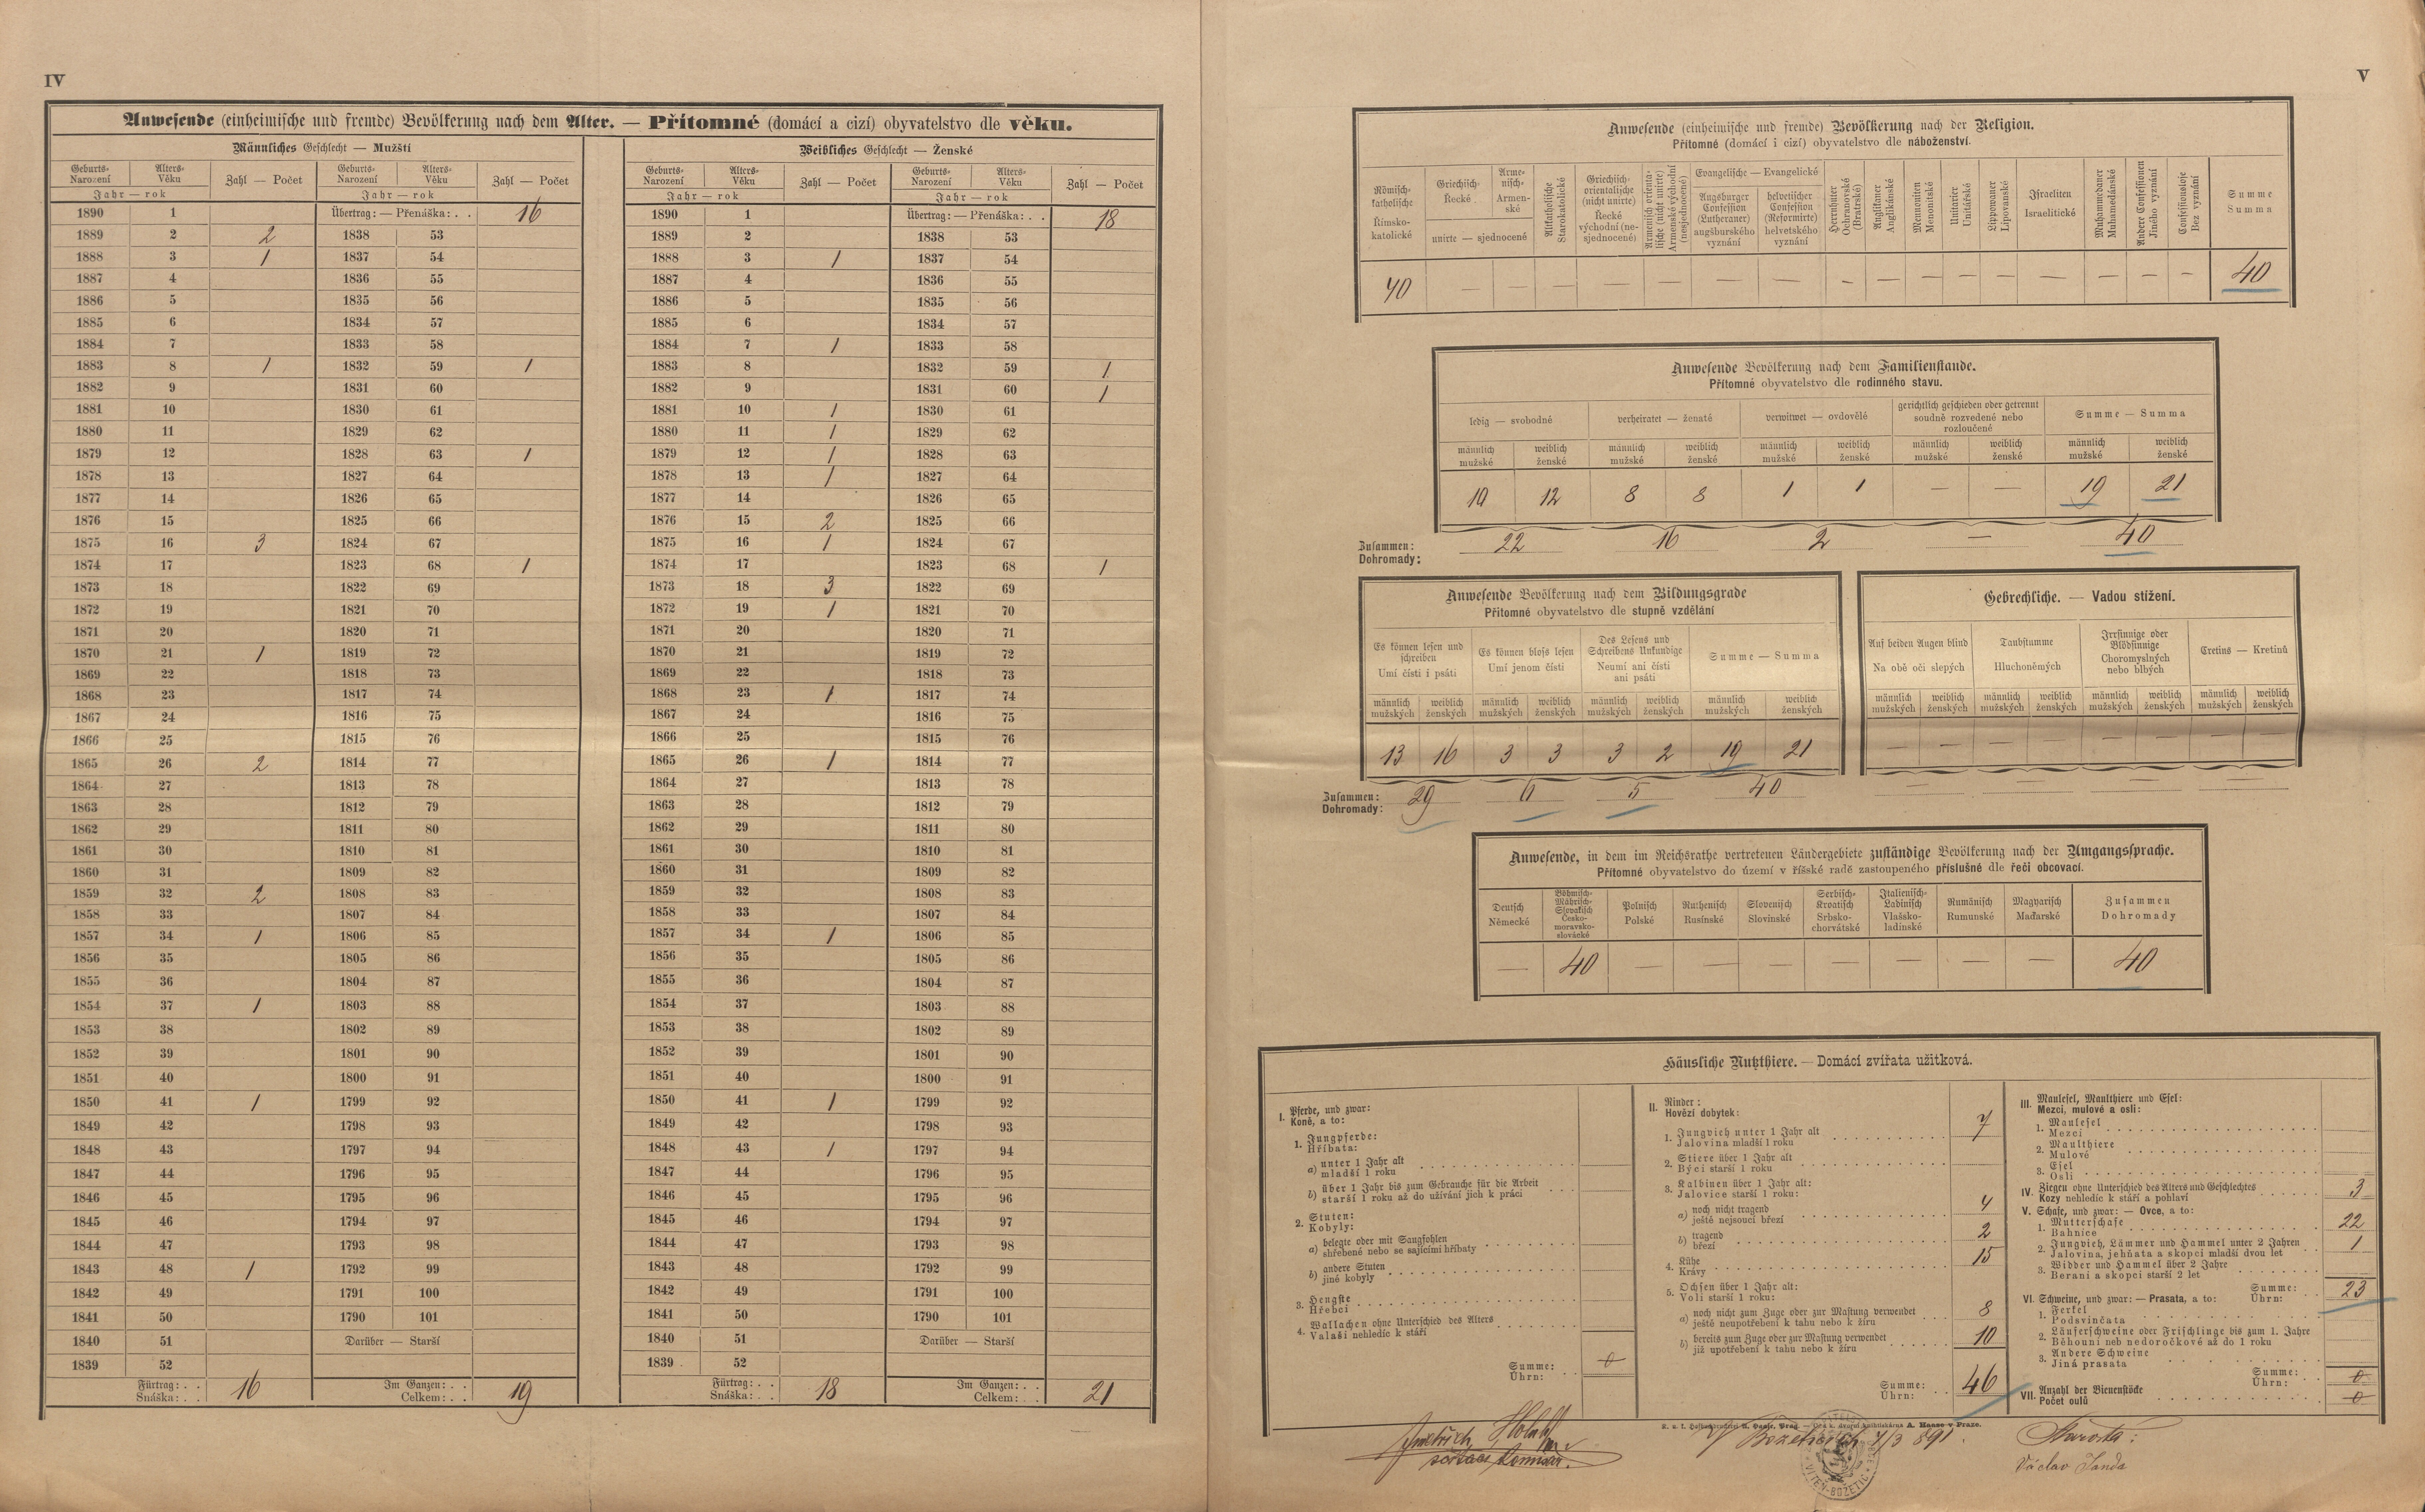 IV
Anwesende (einheimische und fremde) Bevölkerung nach dem Alter. — Přítomné (domácí a cizí) obyvatelstvo dle věku.
Männliches Geschlecht — Mužští
Weibliches Geschlecht — Ženské
Geburts- Narození Alters- Věku Zahl — Počet Geburts- Narození Alters- Věku Zahl — Počet Geburts- Narození Alters- Věku Zahl — Počet Geburts- Narození Alters- Věku Zahl — Počet
Jahr — rok Jahr — rok Jahr — rok Jahr — rok
1890 1 Übertrag: — Přenáška: . . 16 1890 1 Übertrag: — Přenáška: . . 18
1889 2 2 1838 53 1889 2 1838 53
1888 3 1 1837 54 1888 3 1 1837 54
1887 4 1836 55 1887 4 1836 55
1886 5 1835 56 1886 5 1835 56
1885 6 1834 57 1885 6 1834 57
1884 7 1833 58 1884 7 1 1833 58
1883 8 1 1832 59 1 1883 8 1832 59 1
1882 9 1831 60 1882 9 1831 60 1
1881 10 1830 61 1881 10 1 1830 61
1880 11 1829 62 1880 11 1 1829 62
1879 12 1828 63 1 1879 12 1 1828 63
1878 13 1827 64 1878 13 1 1827 64
1877 14 1826 65 1877 14 1826 65
1876 15 1825 66 1876 15 2 1825 66
1875 16 3 1824 67 1875 16 1 1824 67
1874 17 1823 68 1 1874 17 1823 68 1
1873 18 1822 69 1873 18 3 1822 69
1872 19 1821 70 1872 19 1 1821 70
1871 20 1820 71 1871 20 1820 71
1870 21 1 1819 72 1870 21 1819 72
1869 22 1818 73 1869 22 1818 73
1868 23 1817 74 1868 23 1 1817 74
1867 24 1816 75 1867 24 1816 75
1866 25 1815 76 1866 25 1815 76
1865 26 2 1814 77 1865 26 1 1814 77
1864 27 1813 78 1864 27 1813 78
1863 28 1812 79 1863 28 1812 79
1862 29 1811 80 1862 29 1811 80
1861 30 1810 81 1861 30 1810 81
1860 31 1809 82 1860 31 1809 82
1859 32 2 1808 83 1859 32 1808 83
1858 33 1807 84 1858 33 1807 84
1857 34 1 1806 85 1857 34 1 1806 85
1856 35 1805 86 1856 35 1805 86
1855 36 1804 87 1855 36 1804 87
1854 37 1 1803 88 1854 37 1803 88
1853 38 1802 89 1853 38 1802 89
1852 39 1801 90 1852 39 1801 90
1851 40 1800 91 1851 40 1800 91
1850 41 1 1799 92 1850 41 1 1799 92
1849 42 1798 93 1849 42 1798 93
1848 43 1797 94 1848 43 1 1797 94
1847 44 1796 95 1847 44 1796 95
1846 45 1795 96 1846 45 1795 96
1845 46 1794 97 1845 46 1794 97
1844 47 1793 98 1844 47 1793 98
1843 48 1 1792 99 1843 48 1792 99
1842 49 1791 100 1842 49 1791 100
1841 50 1790 101 1841 50 1790 101
1840 51 Darüber — Starší 1840 51 Darüber — Starší
1839 52 1839 52
Fürtrag: . . Snáška: . . 16 Im Ganzen: . . Celkem: . . 19 Fürtrag: . . Snáška: . . 18 Im Ganzen: . . Celkem: . . 21
V
Anwesende (einheimische und fremde) Bevölkerung nach der Religion.
Přítomné (domácí i cizí) obyvatelstvo dle náboženství.
Römisch-katholische Římsko-katolické
Griechisch- Řecké
Arme-nisch- Armen-ské
unirte — sjednocené
Altkatholische Starokatolické
Griechisch-orientalische (nicht unirte) Řecké východní (ne-sjednocené)
Armenisch orienta-lische (nicht unirte) Armenské východní (nesjednocené)
Evangelische — Evangelické
Augsburger Confession (Lutheraner) augšburského vyznání
helvetischer Confession (Reformirte) helvetského vyznání
Herrnhuter Ochranovské (Bratrské)
Anglikaner Anglikánské
Mennoniten Menonitské
Unitarier Unitářské
Lippowaner Lipovanské
Israeliten Israelitické
Muhammedaner Muhamedánské
Andere Confessionen Jiného vyznání
Confessionslose Bez vyznání
Summe Summa
40 — — — — — — — — — — — — — — — — 40
Anwesende Bevölkerung nach dem Familienstande.
Přítomné obyvatelstvo dle rodinného stavu.
ledig — svobodné verheiratet — ženaté verwitwet — ovdovělé gerichtlich geschieden oder getrennt soudně rozvedené nebo rozloučené Summe — Summa
männlich mužské weiblich ženské männlich mužské weiblich ženské männlich mužské weiblich ženské männlich mužské weiblich ženské männlich mužské weiblich ženské
10 12 8 8 1 1 — — 19 21
Zusammen: Dohromady: 22 16 2 — 40
Anwesende Bevölkerung nach dem Bildungsgrade
Přítomné obyvatelstvo dle stupně vzdělání
Es können lesen und schreiben Umí čísti i psáti
Es können bloss lesen Umí jenom čísti
Des Lesens und Schreibens Unkundige Neumí ani čísti ani psáti
Summe — Summa
männlich mužských weiblich ženských männlich mužských weiblich ženských männlich mužských weiblich ženských männlich mužských weiblich ženských
13 16 3 3 3 2 19 21
Zusammen: Dohromady: 29 6 5 40
Gebrechliche. — Vadou stížení.
Auf beiden Augen blind Na obě oči slepých
Taubstumme Hluchoněmých
Irrsinnige oder Blödsinnige Choromyslných nebo blbých
Cretins — Kretinů
männlich mužských weiblich ženských männlich mužských weiblich ženských männlich mužských weiblich ženských männlich mužských weiblich ženských
— — — — — — — —
— — — —
Anwesende, in dem im Reichsrathe vertretenen Ländergebiete zuständige Bevölkerung nach der Umgangssprache.
Přítomné obyvatelstvo do území v říšské radě zastoupeného příslušné dle řeči obcovací.
Deutsch Německé
Böhmisch-Mährisch-Slovakisch Česko-moravsko-slovácké
Polnisch Polské
Ruthenisch Rusínské
Slovenisch Slovinské
Serbisch-Kroatisch Srbsko-chorvátské
Italienisch-Ladinisch Vlašsko-ladinské
Rumänisch Rumunské
Magyarisch Maďarské
Zusammen Dohromady
— 40 — — — — — — — 40
Häusliche Nutzthiere. — Domácí zvířata užitková.
I. Pferde, und zwar:
Koně, a to:
1. Jungpferde:
Hříbata:
a) unter 1 Jahr alt
mladší 1 roku
b) über 1 Jahr bis zum Gebrauche für die Arbeit
starší 1 roku až do užívání jich k práci
2. Stuten:
Kobyly:
a) belegte oder mit Saugfohlen
shřebené nebo se sajícími hříbaty
b) andere Stuten
jiné kobyly
3. Hengste
Hřebci
4. Wallachen ohne Unterschied des Alters
Valaši nehledíc k stáří
Summe: Úhrn: 0
II. Rinder:
Hovězí dobytek:
1. Jungvieh unter 1 Jahr alt
Jalovina mladší 1 roku 7
2. Stiere über 1 Jahr alt
Býci starší 1 roku
3. Kalbinen über 1 Jahr alt:
Jalovice starší 1 roku:
a) noch nicht tragend
ještě nejsoucí březí 4
b) tragend
březí 2
4. Kühe
Krávy 15
5. Ochsen über 1 Jahr alt:
Voli starší 1 roku:
a) noch nicht zum Zuge oder zur Mastung verwendet
ještě neupotřebení k tahu nebo k žíru 8
b) bereits zum Zuge oder zur Mastung verwendet
již upotřebení k tahu nebo k žíru 10
Summe: Úhrn: 46
III. Maulesel, Maulthiere und Esel:
Mezci, mulové a osli:
1. Maulesel
Mezci
2. Maulthiere
Mulové
3. Esel
Osli
IV. Ziegen ohne Unterschied des Alters und Geschlechtes
Kozy nehledíc k stáří a pohlaví 3
V. Schafe, und zwar: — Ovce, a to:
1. Mutterschafe
Bahnice 22
2. Jungvieh, Lämmer und Hammel unter 2 Jahren
Jalovina, jehňata a skopci mladší dvou let 1
3. Widder und Hammel über 2 Jahre
Berani a skopci starší 2 let
Summe: Úhrn: 23
VI. Schweine, und zwar: — Prasata, a to:
1. Ferkel
Podsvinčata
2. Läuferschweine oder Frischlinge bis zum 1. Jahre
Běhouni neb nedoročkové až do 1 roku
3. Andere Schweine
Jiná prasata
Summe: Úhrn: 0
VII. Anzahl der Bienenstöcke
Počet oulů 0
A. Haase v Praze.
7/3 891.
Starosta:
Václav Janda